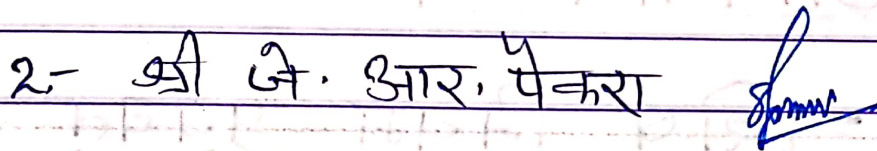 2- श्री जे. आर. पैकरा